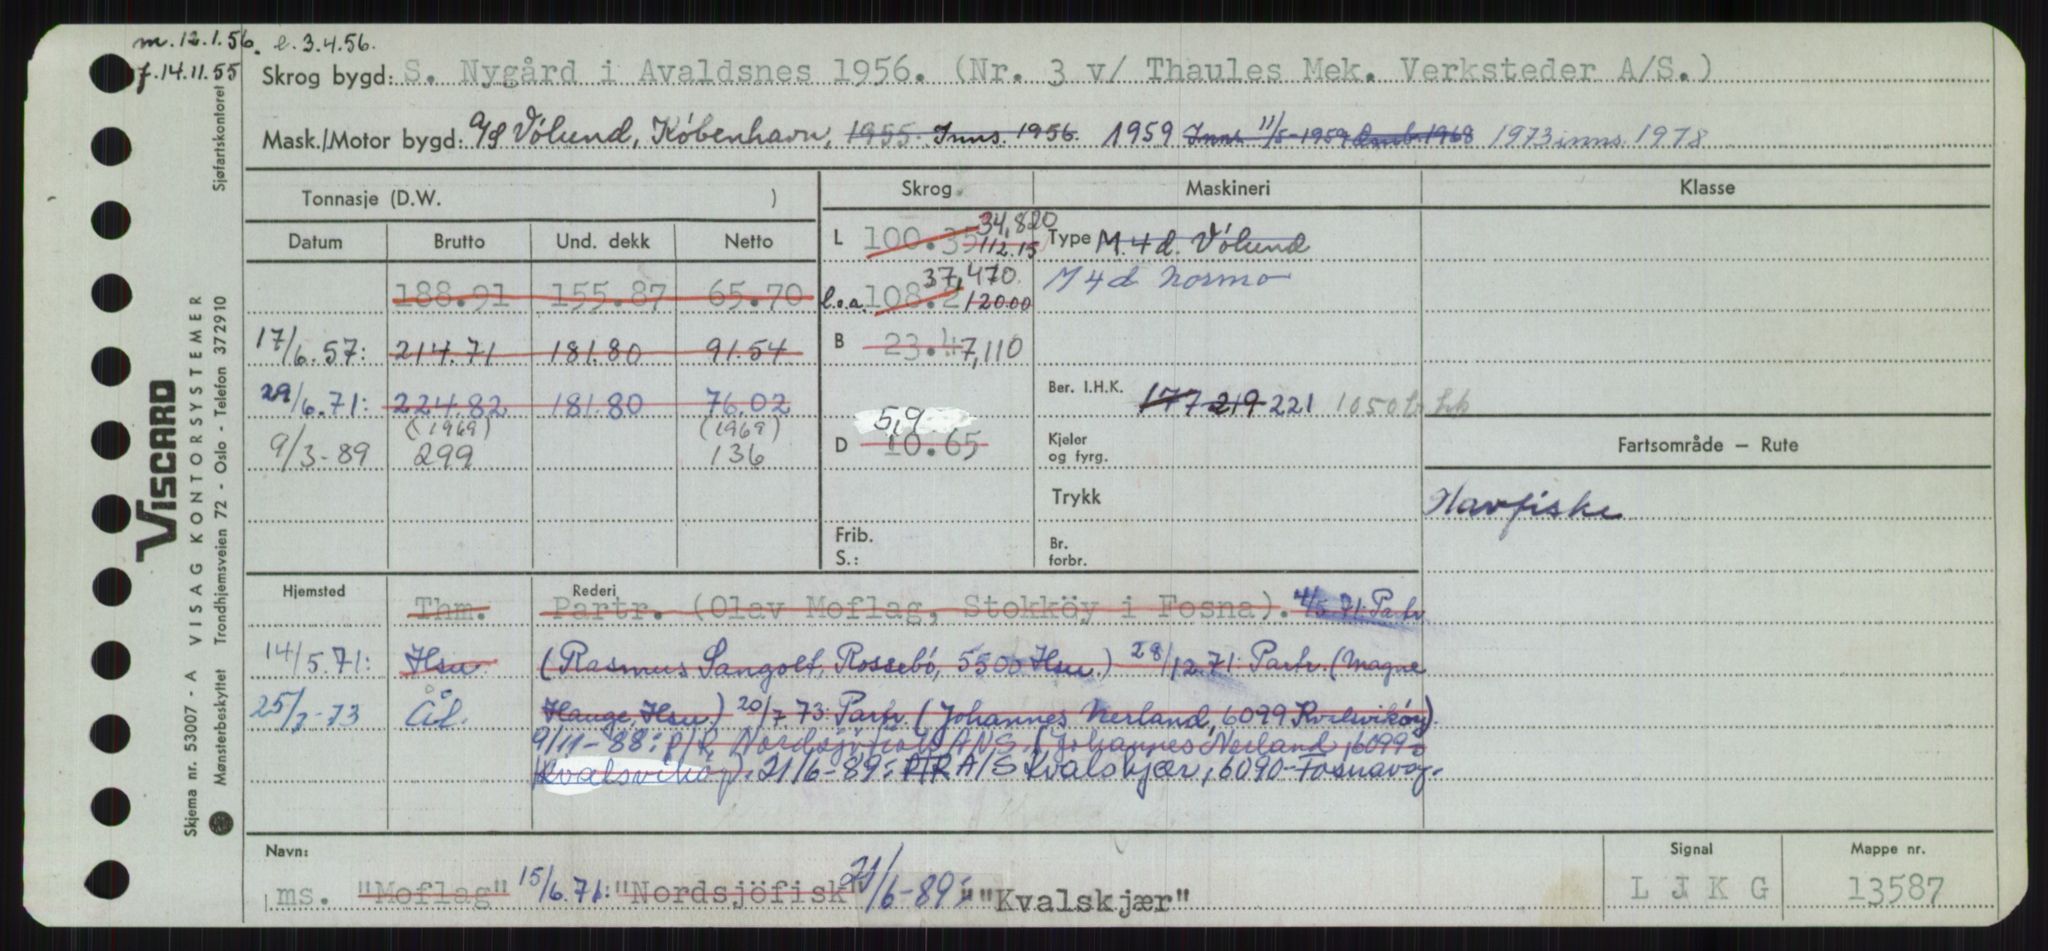 m. 12.1.56. l. 3.4.56.
f. 14.11.55
Skrog bygd: S. Nygård i Avaldsnes 1956. (Nr. 3 v/ Thaules Mek. Verksteder A/S.)
Mask./Motor bygd: A/S Vølund, København, 1955. Inns. 1956. 1959 Inns 11/5-1959 Omb. 1968 1973 inns. 1978
Tonnasje (D.W. ) Skrog. Maskineri Klasse
Datum Brutto Und. dekk Netto
L 100.35 112.15 34,820 Type M. 4 d. Vølund
188.91 155.87 65.70 l.o.a. 108.2 120.00 37,470 M 4 d Normo
17/6.57: 214.71 181.80 91.54 B 23.4 7,110
29/6.71: 224.82 181.80 76.02 Ber. I.H.K. 177 219 221 1050
(1969) (1969) 5,9
9/3-89 299 136 D 10.65 Kjeler og fyrg. Fartsområde — Rute
Trykk Havfiske
Frib.
S.: Br. forbr.
Hjemsted Rederi
Thm. Partr. (Olav Moflag, Stokköy i Fosna). 4/5.71: Partr
14/5.71: Hsu. (Rasmus Sangolt, Rossebö, 5500 Hsu.) 28/12.71: Partr. (Magne
25/7-73 Ål. Hauge, Hsu.) 20/7 73: Partr. (Johannes Nerland, 6099 Kvalsvikøy).
9/11-88: P/R Nordsjöfisk ANS. (Johannes Nerland, 6099-
Kvalsvikøy). 21/6-89: PR A/S Kvalskjær, 6090-Fosnavåg.
Navn: Signal Mappe nr.
ms. "Moflag" 15/6.71: "Nordsjöfisk" 21/6-89: "Kvalskjær" L J K G 13587
VISCARD
VISAG KONTORSYSTEMER
Skjema nr. 53007 - A
Mønsterbeskyttet Trondhjemsveien 72 - Oslo - Telefon 372910
Sjøfartskontoret